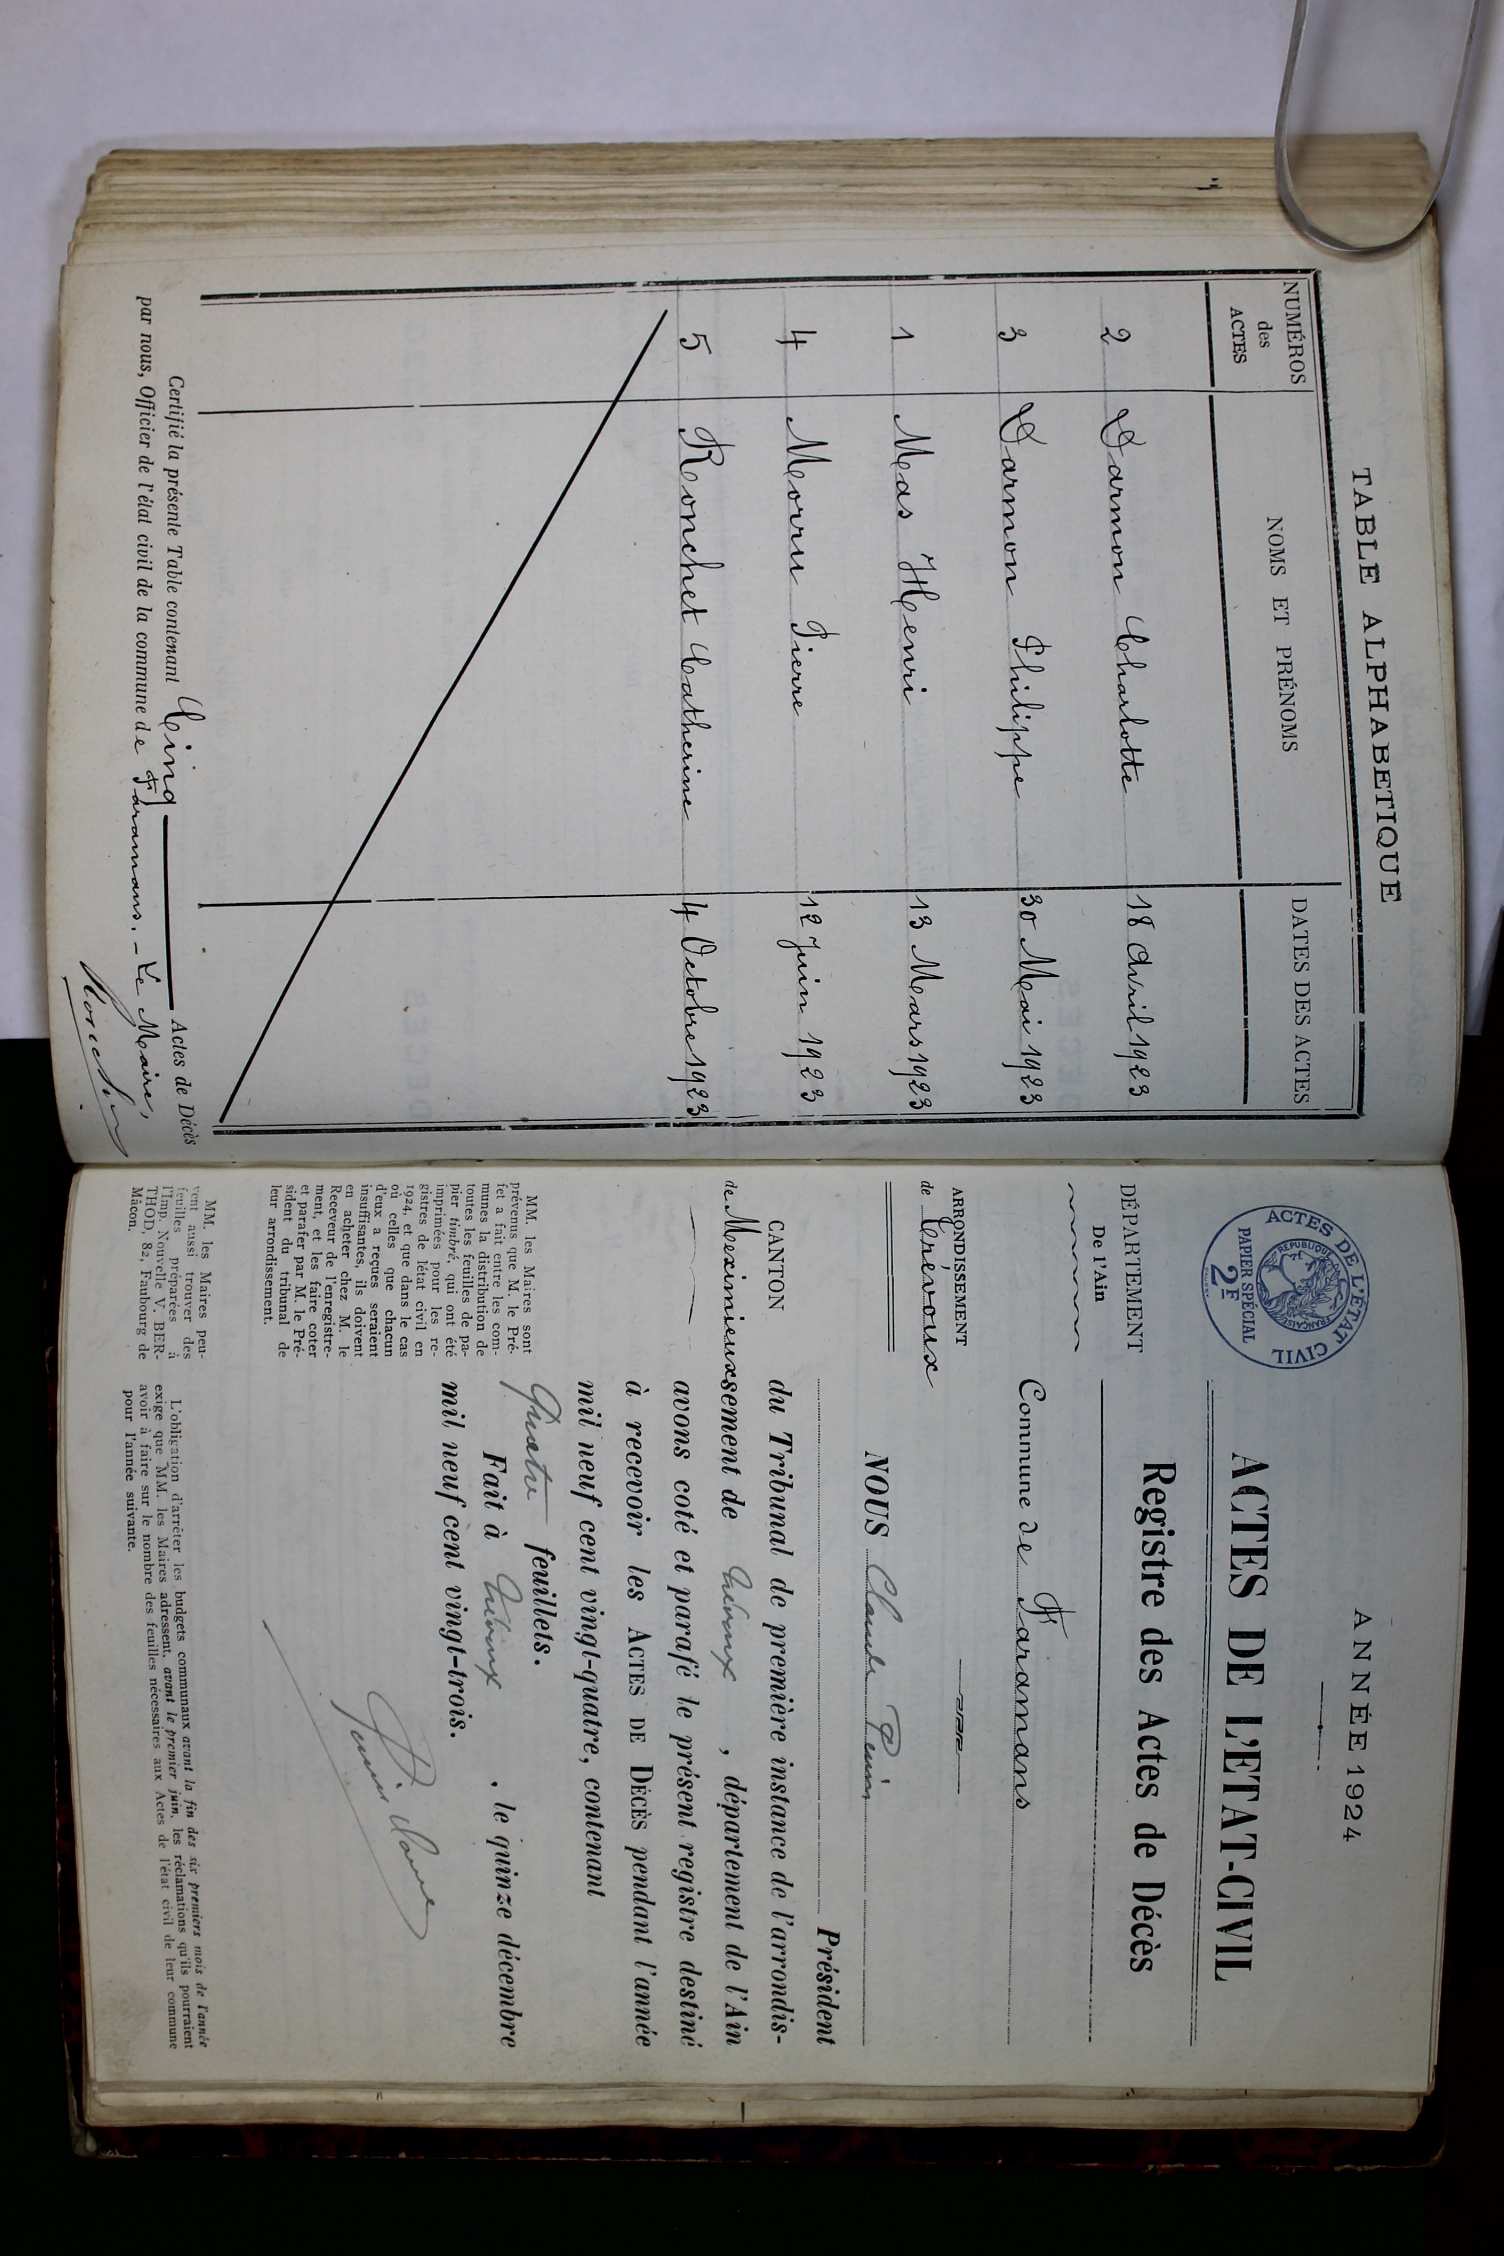 TABLE ALPHABETIQUE
NUMÉROS des ACTES NOMS ET PRÉNOMS DATES DES ACTES
2 Darmon Charlotte 18 Avril 1923
3 Darmon Philippe 30 Mai 1923
1 Mas Henri 13 Mars 1923
4 Morru Pierre 12 Juin 1923
5 Ronchet Catherine 4 Octobre 1923
Certifié la présente Table contenant Cinq Actes de Décès
par nous, Officier de l'état civil de la commune de Faramans. - Le Maire,
ANNÉE 1924
ACTES DE L'ÉTAT CIVIL
RÉPUBLIQUE FRANÇAISE
PAPIER SPÉCIAL
2F
ACTES DE L'ETAT-CIVIL
Registre des Actes de Décès
DÉPARTEMENT
De l'Ain
Commune de Faramans
ARRONDISSEMENT
de Trévoux
NOUS Claude Perrin
Président
CANTON
de Meximieux
du Tribunal de première instance de l'arrondis-
sement de Trévoux, département de l'Ain
avons coté et parafé le présent registre destiné
à recevoir les ACTES DE DÉCÈS pendant l'année
mil neuf cent vingt-quatre, contenant
Quatre feuillets.
Fait à Trévoux, le quinze décembre
mil neuf cent vingt-trois.
MM. les Maires sont
prévenus que M. le Pré-
fet a fait entre les com-
munes la distribution de
toutes les feuilles de pa-
pier timbré, qui ont été
imprimées pour les re-
gistres de l'état civil en
1924, et que dans le cas
où celles que chacun
d'eux a reçues seraient
insuffisantes, ils doivent
en acheter chez M. le
Receveur de l'enregistre-
ment, et les faire coter
et parafer par M. le Pré-
sident du tribunal de
leur arrondissement.
MM. les Maires peu-
vent aussi trouver des
feuilles préparées à
l'Imp. Nouvelle V. BER-
THOD, 82, Faubourg de
Mâcon.
L'obligation d'arrêter les budgets communaux avant la fin des six premiers mois de l'année
exige que MM. les Maires adressent, avant le premier juin, les réclamations qu'ils pourraient
avoir à faire sur le nombre des feuilles nécessaires aux Actes de l'état civil de leur commune
pour l'année suivante.